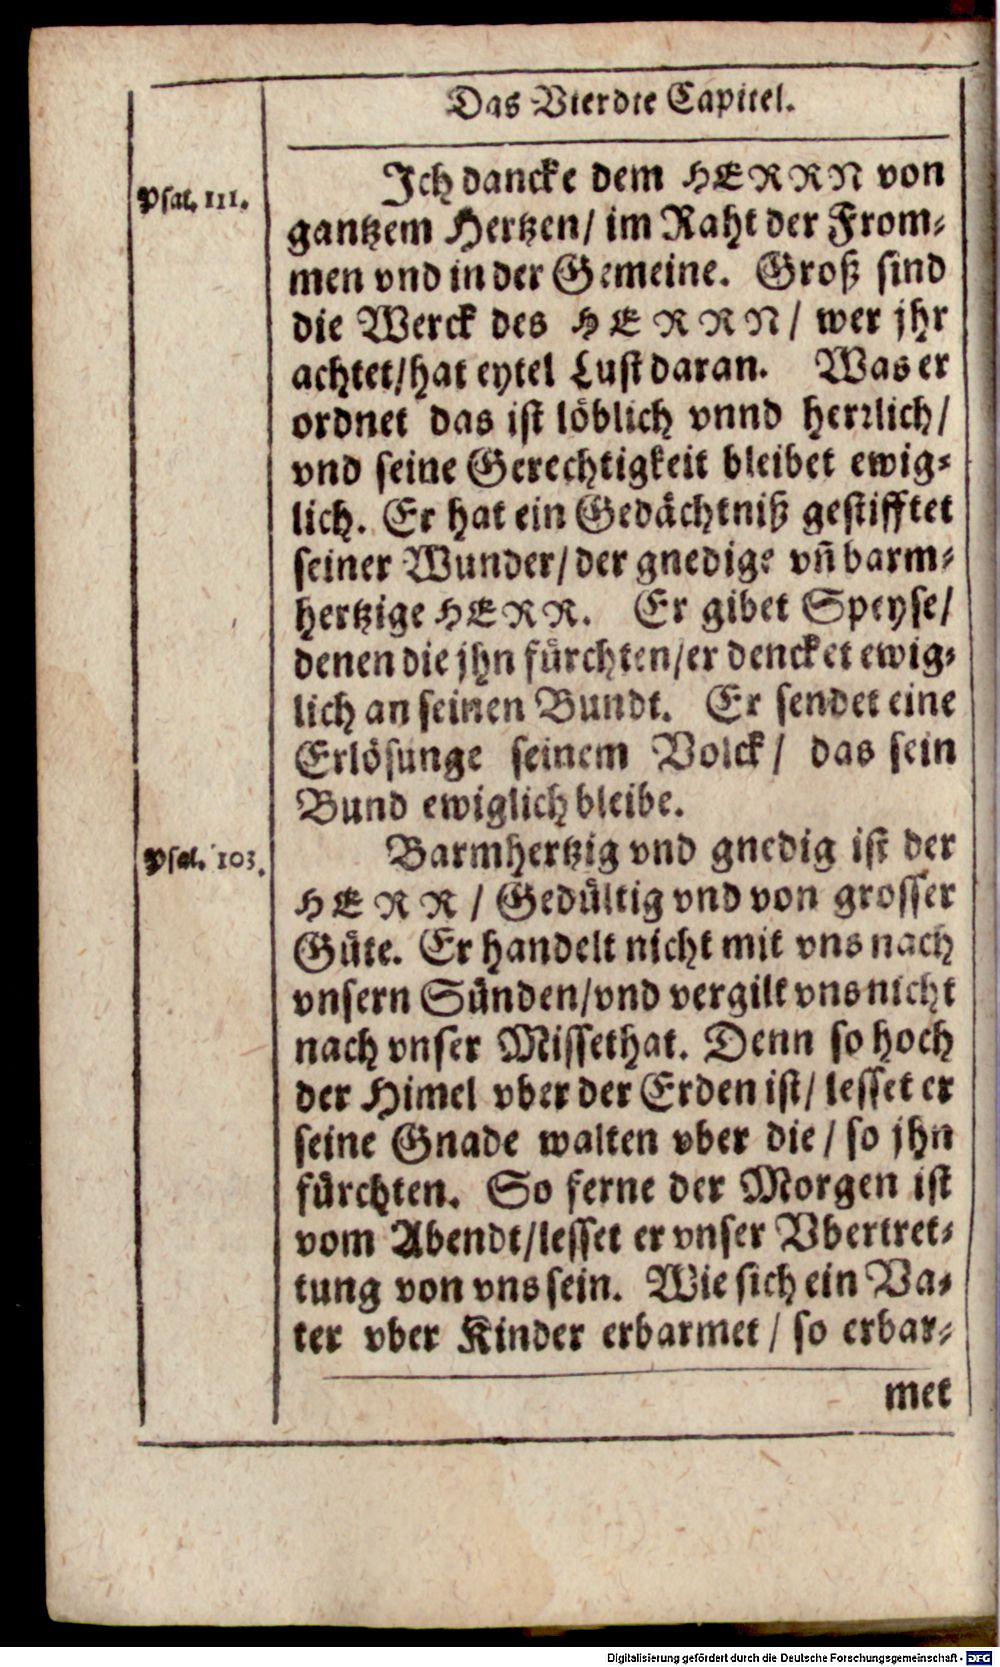 Das Vierdte Capitel.
Psal. 111.
Ich dancke dem HERRN von
gantzem Hertzen/ im Raht der From-
men vnd in der Gemeine. Groß sind
die Werck des HERRN/ wer jhr
achtet/hat eytel Lust daran. Was er
ordnet das ist löblich vnnd herrlich/
vnd seine Gerechtigkeit bleibet ewig-
lich. Er hat ein Gedächtniß gestifftet
seiner Wunder/ der gnedige vñ barm-
hertzige HERR. Er gibet Speyse/
denen die jhn fürchten/er dencket ewig-
lich an seinen Bundt. Er sendet eine
Erlösunge seinem Volck/ das sein
Bund ewiglich bleibe.
Psal. 103.
Barmhertzig vnd gnedig ist der
HERR/ Gedültig vnd von grosser
Güte. Er handelt nicht mit vns nach
vnsern Sünden/vnd vergilt vns nicht
nach vnser Missethat. Denn so hoch
der Himel vber der Erden ist/ lesset er
seine Gnade walten vber die/ so jhn
fürchten. So ferne der Morgen ist
vom Abendt/lesset er vnser Vbertret-
tung von vns sein. Wie sich ein Va-
ter vber Kinder erbarmet/ so erbar-
met
Digitalisierung gefördert durch die Deutsche Forschungsgemeinschaft - DFG